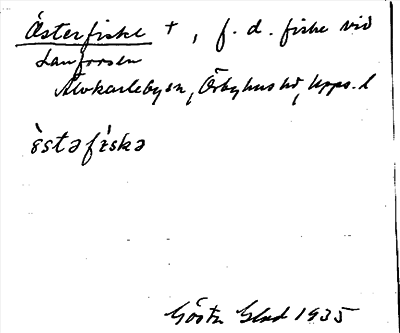 Österfiske +, f. d. fiske vid
Lanforsen
Älvkarlebyen, Örbyhus hd, Upps. l
östəfiskə
Gösta Glad 1935